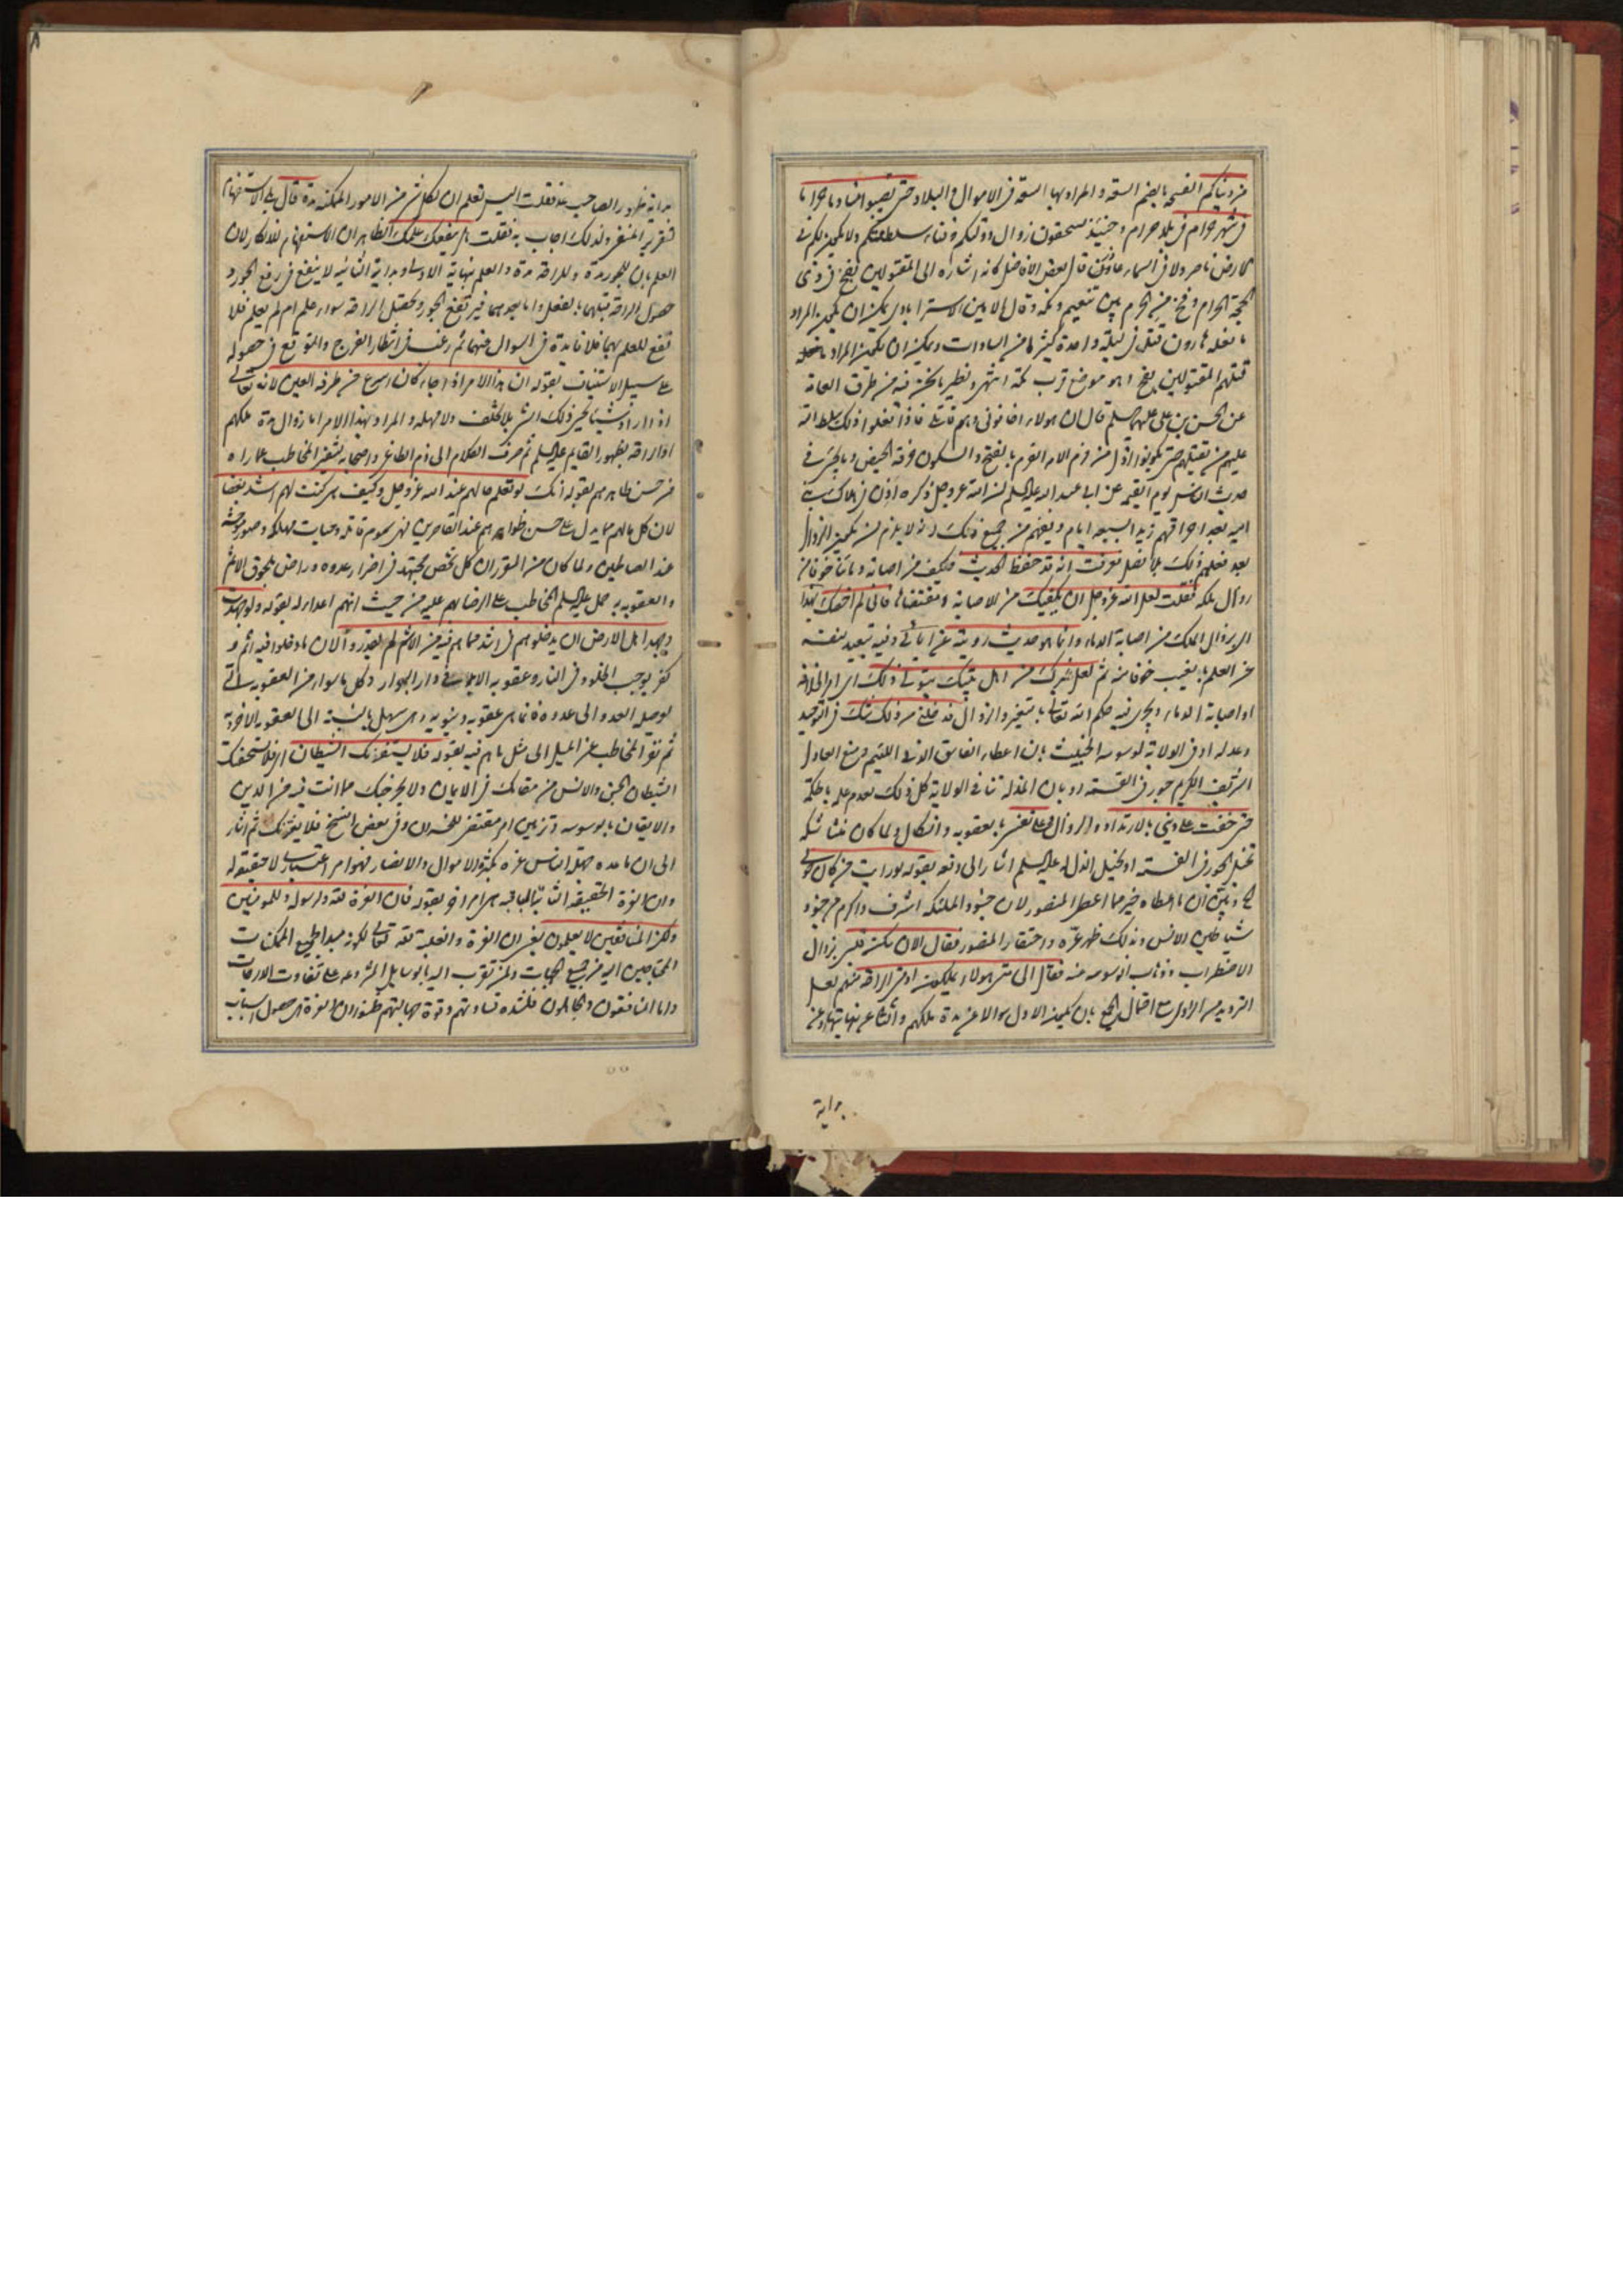 من دنياكم الفسحة بالضم السعة والمراد بها السعة في الاموال والبلاد حتى تصيبوا منا دما حراما
في شهر حرام في بلد حرام وحينئذ تستحقون زوال دولتكم وفناء سلطنتكم ولا يكون لكم في
الارض ناصر ولا في السماء عاذر قال بعض الافاضل كانه اشارة الى المقتولين بفخ في ذى
الحجة الحرام وفخ من الحرم بين تنعيم ومكة وقال الامين الاسترابادى يمكن ان يكون المراد
ما فعله هارون قتل في ليلة واحدة كثيرا من السادات ويمكن ان يكون المراد ما فعله
قبلهم المقتولين بفخ وهو موضع قرب مكة انتهى ونظير ما نحن فيه من طرق العامة
عن الحسن بن على عليهما السلم قال ان هولاء اخافونى وهم قاتلى فاذا فعلوا ذلك سلط الله
عليهم من يقتلهم حتى يكونوا اذل من فرم الامة الفرم بالفتح والسكون خرقة الحيض وما يجىء في
حديث الناس يوم القيمة عن ابى عبد الله عليه السلم ان الله عز وجل ذكره اذن في هلاك بنى
امية بعد احراقهم زيدا بسبعة ايام
بعد فعلهم ذلك بلا فصل فعرفت انه قد حفظ الحديث
زوال ملكه فقلت لعل الله عز وجل ان يكفيك من الاصابة ومقتضاها فانى لم اخصك بهذا
اى بزوال الملك من اصابة الدماء وانما هو حديث رويته عن ابائى وفيه تبعيد نفسه
عن العلم بالغيب خوفا منه ثم لعل غيرك من اهل بيتك يتولى ذلك اى امر الخلافة
او اصابة الدماء ويجرى فيه حكم الله تعالى بالتغيير والزوال قد خلنى من ذلك شك في التوحيد
وعدله او في الولاية لوسوسة الخبيث بان اعطاء الفاسق الدنى اللئيم ومنع العادل
الشريف الكريم جور في القسمة او بان المذلة تنافى الولاية كل ذلك لعدم علمه بالحكمة
حتى خفت على دينى بالارتداد والزوال وعلى نفسى بالعقوبة والنكال ولما كان منشأ شكه
تخيل الجور في القسمة او تخيل الذل له عليه السلم اشار الى دفعه بقوله لو رايت من كان حولى
شياطين الانس وبذلك ظهر عزه واحتقار المنصور فقال الان سكن قلبى بزوال
الاضطراب وذهاب الوسوسة عنه فقال الى متى هولاء يملكون او متى الراحة منهم لعل
الترديد من الراوى مع احتمال الجمع بان يكون الاول سوالا عن مدة ملكهم والثانى عن نهايتها وعن
بداية
بداية ظهور الصاحب عه فقلت اليس تعلم ان لكل شىء من الامور الممكنة مدة قال بلى الاستفهام
لتقرير المنفى ولذلك اجاب به فقلت هل ينفعك علمك الظاهر ان الاستفهام للانكار لان
العلم بان للجور مدة وللراحة مدة والعلم بنهاية الاولى وبداية الثانية لا ينفع في رفع الجور و
حصول الراحة قبلهما بالفعل واما بعدهما فيرتفع الجور وتحصل الراحة سواء علم ام لم يعلم فلا
نفع للعلم بهما فلا فائدة في السوال عنهما ثم رغبه في انتظار الفرج والتوقع في حصوله
على سبيل الاستيناف بقوله ان هذا الامر اذا جاء كان اسرع من طرفة العين لانه تعالى
اذا اراد شيئا يحدث ذلك الشىء بلا تخلف ولا مهلة والمراد بهذا الامر اما زوال مدة ملكهم
او الراحة بظهور القايم عليه السلم ثم صرف الكلام الى ذم الطاغى واصحابه لتنفير المخاطب عما راه
من حسن ظاهرهم بقوله انك لو تعلم حالهم عند الله عز وجل وكيف هى كنت لهم اشد بغضا
لان كل مالهم مما يدل على حسن ظواهرهم عند القاصرين فهى سموم قاتلة وحيات مهلكة وصور موحشة
عند العاملين ولما كان من المقرر ان كل شخص يجتهد في اضرار عدوه وراض بلحوق الاثم
والعقوبة به حمل عليه السلم المخاطب على الرضا بهم عليه من حيث انهم اعداء له بقوله ولو جهدت
وجهد اهل الارض ان يدخلوهم في اشد مما هم فيه من الاثم لم يقدروا لان ما دخلوا فيه اثم و
كفر يوجب الخلود في النار وعقوبة الابد في دار البوار وكل ما سواه من العقوبة التى
يوصله العدو الى عدوه فانما هى عقوبة دنيوية وهى سهل بالنسبة الى العقوبة الاخروية
ثم نفر المخاطب عن الميل الى مثل ما هم فيه بقوله فلا يستفزنك الشيطان اى فلا يستخفنك
الشيطان الجن والانس من مقامك في الايمان ولا يخرجنك مما انت فيه من الدين
والايقان بالوسوسة وتزيين امر مقتض للخسران وفي بعض النسخ فلا يغرنك ثم اشار
الى ان ما عده جهلة الناس عزه بكثرة الاموال والانصار فهو امر اعتبارى لا حقيقة له
وان العزة الحقيقية الثابتة الباقية هى امر اخر بقوله فان العزة لله ولرسوله وللمومنين
ولكن المنافقين لا يعلمون يعنى ان العزة والغلبة لله تعالى لكونه مبدأ لجميع الممكنات
المحتاجين اليه من جميع الجهات ولمن تقرب اليه بالوسايل المشروعة على تفاوت الدرجات
واما المنافقون والجاهلون فلشدة قساوتهم وقوة جهالتهم يظنون ان العزة هى حصول اسباب